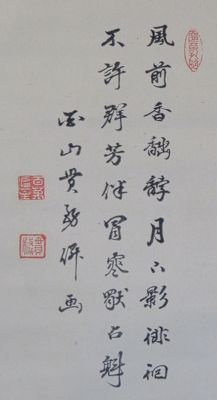 風前香馥馞月下影徘徊
不許群芳伴冒寒獨占魁
山貫併画